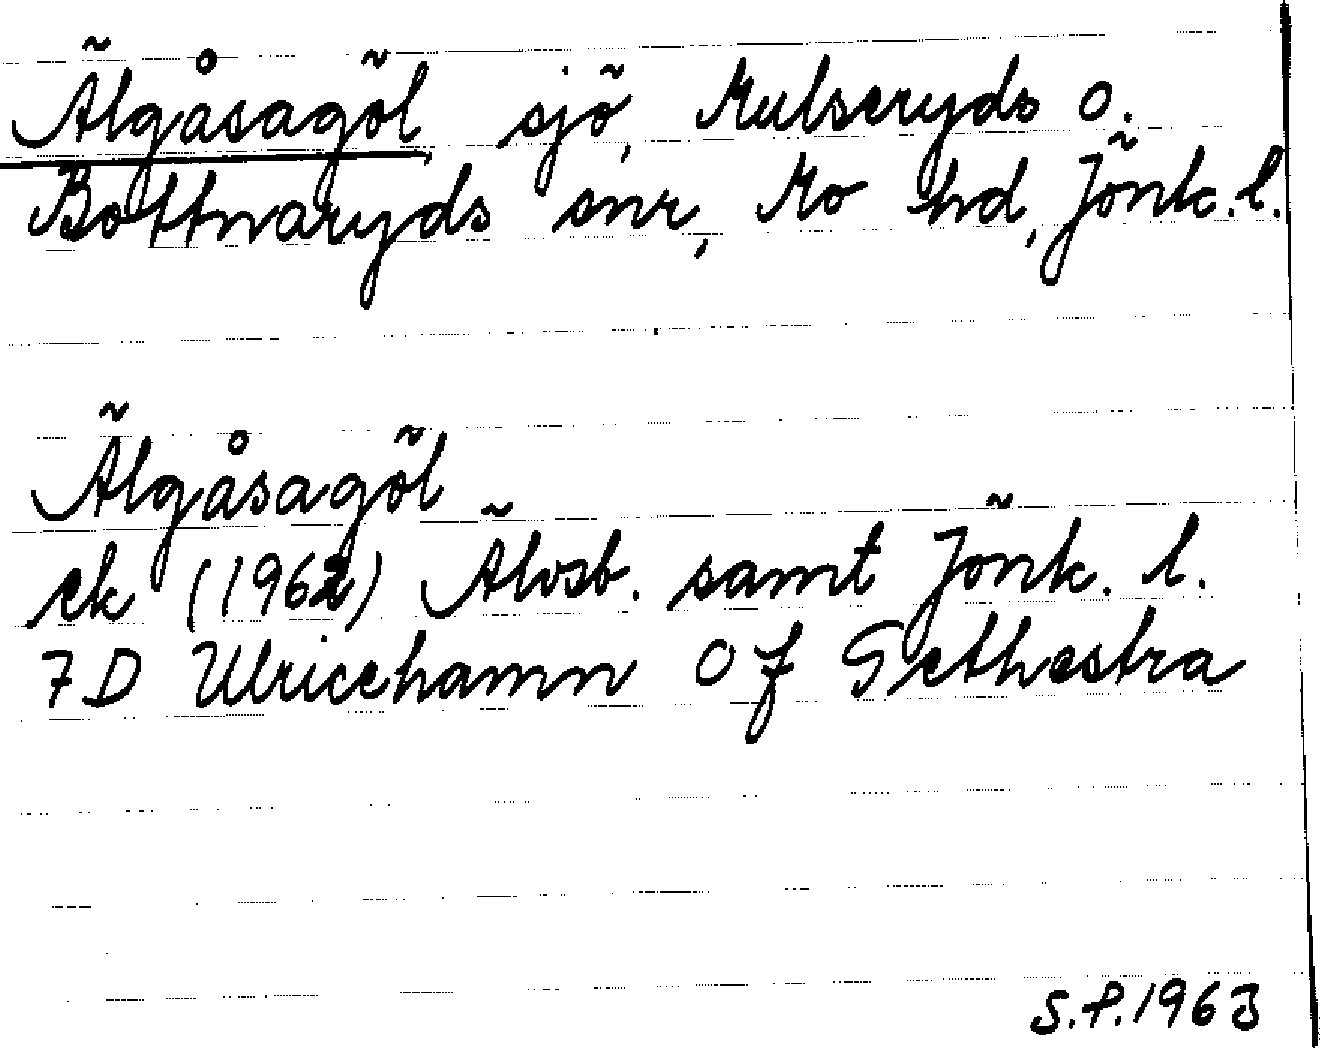 Älgåsagöl, sjö, Mulseryds o.
Bottnaryds snr, Mo hd, Jönk.l.
Älgåsagöl
ek (1962) Älvsb. samt Jönk. l.
7D Ulricehamn 0f Grethestra
S.P.1963